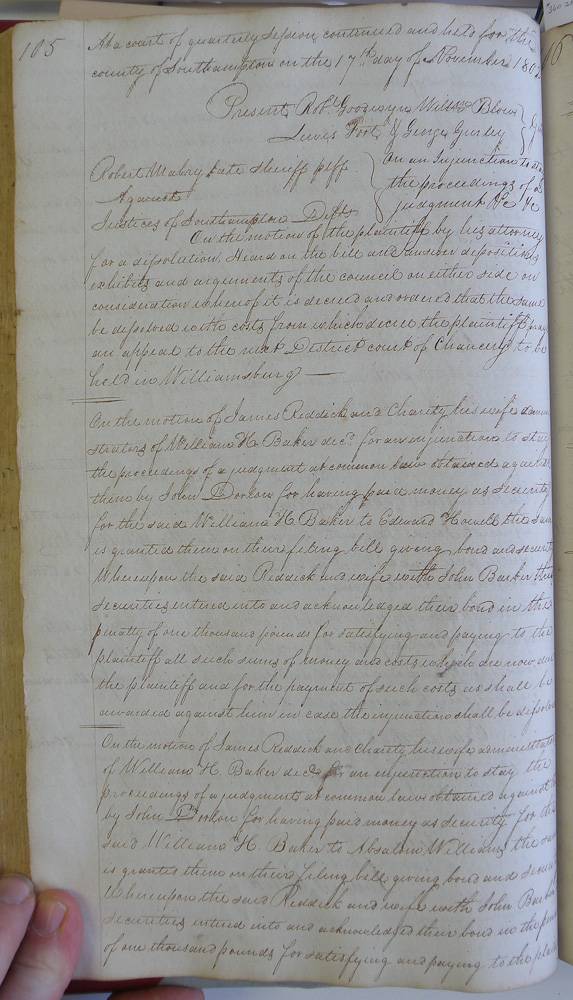 105
At a court of quarterly session continued and held for the
county of Southampton on the 17th day of November 180
Present, Robt Goodwyn Willm Blow
Lewis Fort & George Gurley
Robert Mabry late sheriff plff
Against
Justices of Southampton Defts
On an Injunction to
the proceedings of a
judgment &c &c
On the motion of the plaintiff by his attorney
for a dissolution. Heard on the bill and answer depositions
exhibits and arguments of the council on either side on
consideration whereof it is decreed and ordered that the same
be dissolved with costs from which decree the plaintiff pray
an appeal to the next District court of Chancery to be
held in Williamsburg
On the motion of James Reddick and Charity his wife admin
strators of William H. Baker decd. for an injunction to stay
the proceedings of a judgment at common law obtained against
them by John Dorton for having paid money as security
for the said William H Baker to Edward Howell the same
is granted them on their filing bill giving bond and security
Whereupon the said Reddick and wife with John Barker their
securities entered into and acknowledged their bond in the
penalty of one thousand pounds for satisfying and paying to the
plaintiff all such sums of money and costs which are now due
the plaintiff and for the payment of such costs as shall be
awarded against him in case the injunction shall be dissolved
On the motion of James Reddick and Charity his wife administrators
of William H. Baker decd for an injunction to stay the
proceedings of a judgment at common law obtained against
by John Dorton for having paid money as security for the
said William H Baker to Absalom Williams the same
is granted them on their filing bill giving bond and security
Whereupon the said Reddick and wife with John Barker
securities entered into and acknowledged their bond in the
of one thousand pounds for satisfying and paying to the